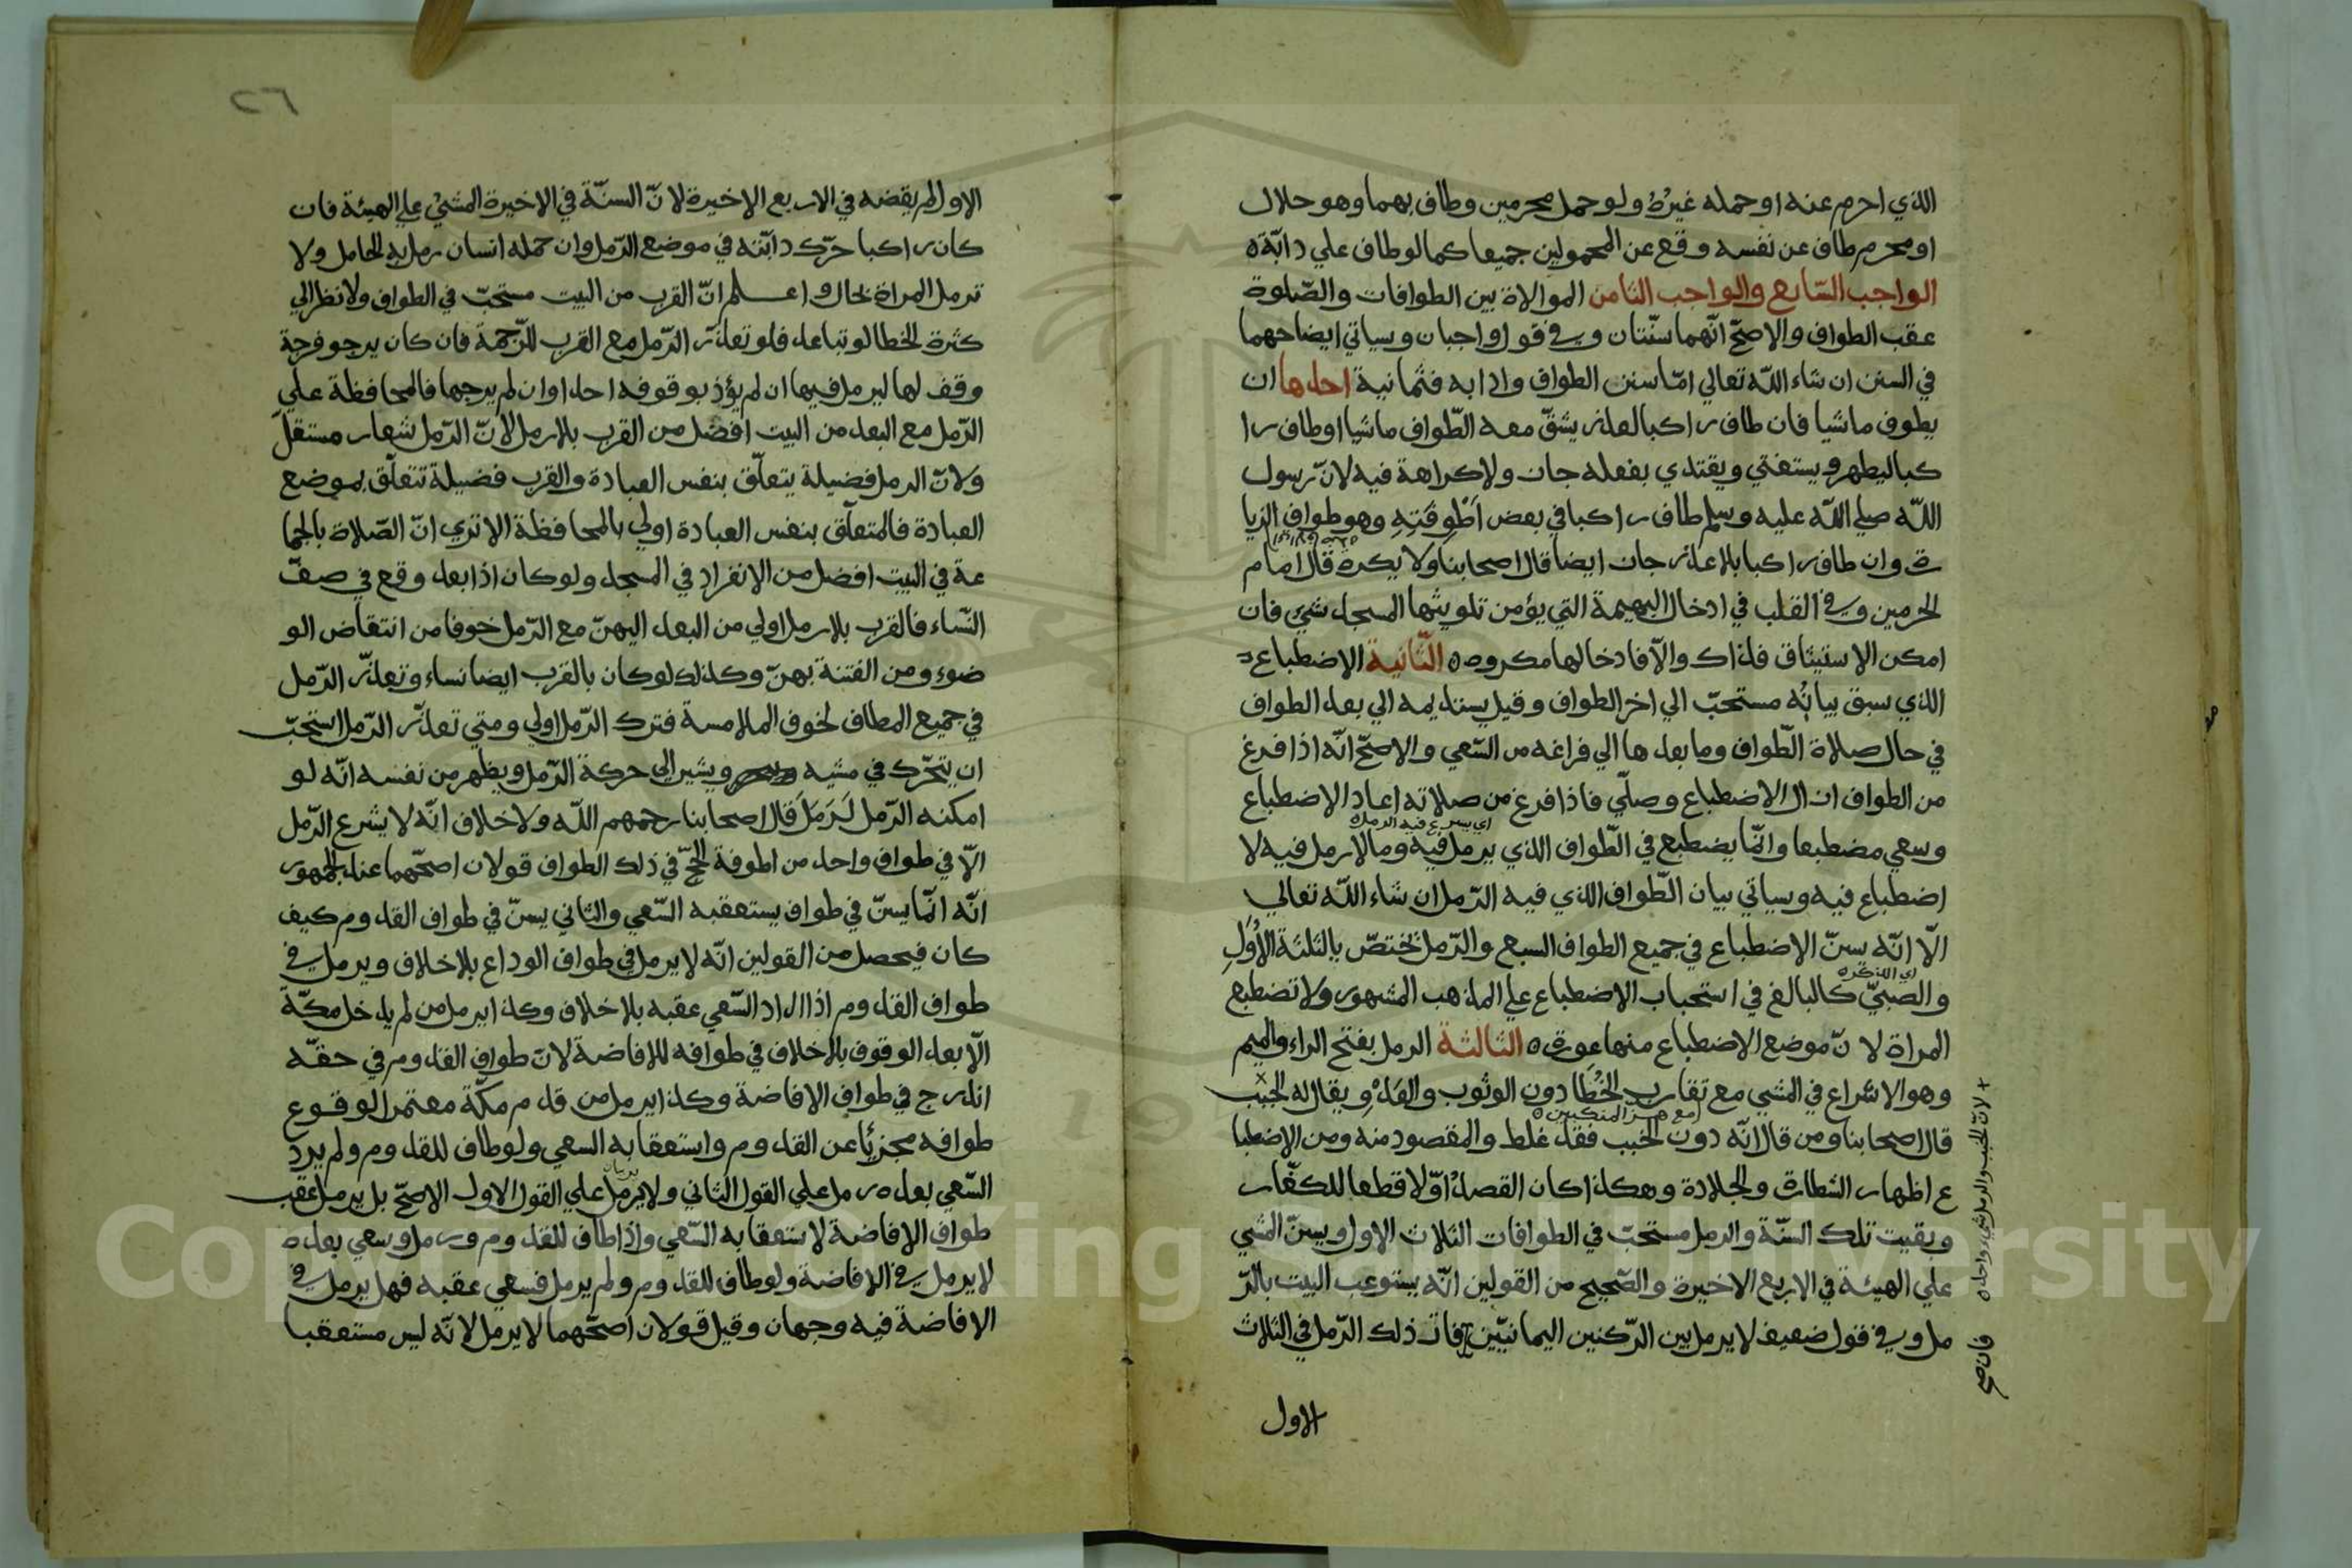 الذي احرم عنه او حمله غيرُهُ ولو حمل محرمين وطاف بهما وهو حلال
او محرم طاف عن نفسه وقع عن المحمولين جميعا كما لو طاف علي دابّة ه
الواجب السّابع والواجب الثامن الموالاة بين الطوافات والصّلوة
عقب الطواف والاصحّ انّهما سنّتان وفي قول واجبان وسياتي ايضاحهما
في السنن ان شاء اللّه تعالي امّا سنن الطواف وادابه فثمانية احدها ان
يطوف ماشيا فان طاف راكبا لعذر يشقّ معه الطّواف ماشيا او طاف را
كبا ليظهر ويستفتي ويقتدي بفعله جاز ولا كراهة فيه لانّ رسول
اللّه صلي اللّه عليه وسلم طاف راكبا في بعض اَطْوِفَتِهِ وهو طواف الزيا
رة وان طاف راكبا بلا عذر جاز ايضا قال اصحابنا ولا يكره قال امام
الحرمين وفي القلب في ادخال البهيمة التي يؤمن تلويثها المسجد شي فان
امكن الاستيثاق فذاك والّا فادخالها مكروه ه الثّانية الاضطباع
الذي سبق بيانُه مستحبّ الي اخر الطواف وقيل يستديمه الي بعد الطواف
في حال صلاة الطّواف وما بعدها الي فراغه من السّعي والاصحّ انّه اذا فرغ
من الطواف ازال الاضطباع وصلّي فاذا فرغ من صلاته اعاد الاضطباع
اي يسرع فيه الرمل ه
وسعي مضطبعا وانّما يضطبع في الطّواف الذي يرمل فيه وما لا رمل فيه لا
اضطباع فيه وسياتي بيان الطّواف الذي فيه الرّمل ان شاء اللّه تعالي
الّا انّه يسنّ الاضطباع في جميع الطواف السبع والرّمل يختصّ بالثلثة الاُوَلِ
اي الذكر ه
والصّبيّ كالبالغ في استحباب الاضطباع علي المذهب المشهور ولا تضطبع
المراة لانّ موضع الاضطباع منها عورة ه الثالثة الرمل بفتح الراء والميم
وهو الاسْراع في المشي مع تقارب الخُطَا دون الوثوب والعَدْوِ ويقال له الخبَب
مع هز المنكبين ه
قال اصحابنا ومن قال انّه دون الخبب فقد غلط والمقصود منه ومن الاضطبا
ع اظهار الشطارة والجلادة وهكذا كان القصدُ اوّلا قطعا للكفّار
وبقيت تلك السّنّة والرمل مستحبّ في الطوافات الثلاث الاول ويسنّ المشي
علي الهيئة في الاربع الاخيرة والصّحيح من القولين انّه يستوعب البيت بالرّ
مل وفي قول ضعيف لا يرمل بين الرّكنين اليمانيّين فات ذلك الرّمل في الثلاث
الاول
لانّ الخبب والرمل شي واحد ه
فان صح
٢٦
الاول لم يقضه في الاربع الاخيرة لانّ السنّة في الاخيرة المشيُ علي الهيئة فان
كان راكبا حرّك دابّته في موضع الرّمل وان حمله انسان رمل به الحامل ولا
ترمل المراة بحال واعلم انّ القرب من البيت مستحبّ في الطواف ولا نظر الي
كثرة الخطا لو تباعد فلو تعذّر الرّمل مع القرب للزّحمة فان كان يرجو فرجة
وقف لها ليرمل فيها ان لم يؤذ بوقوفه احدا وان لم يرجها فالمحافظة علي
الرّمل مع البعد من البيت افضل من القرب بلا رمل لانّ الرّمل شعار مستقلّ
ولانّ الرمل فضيلة يتعلّق بنفس العبادة والقرب فضيلة تتعلّق بموضع
العبادة فالمتعلّق بنفس العبادة اولي بالمحافظة الا تري انّ الصّلاة بالجما
عة في البيت افضل من الانفراد في المسجد ولو كان اذا بعد وقع في صفّ
النّساء فالقرب بلا رمل اولي من البعد اليهنّ مع الرّمل خوفا من انتقاض الو
ضوء ومن الفتنة بهنّ وكذلك لو كان بالقرب ايضا نساء وتعذّر الرّمل
في جميع المطاف لخوف الملامسة فترك الرّمل اولي ومتي تعذّر الرّمل استحبّ
ان يتحرّك في مشيه ويشير الى حركة الرّمل ويظهر من نفسه انّه لو
امكنه الرّمل لَرَمَلَ قال اصحابنا رحمهم اللّه ولا خلاف انّه لا يشرع الرّمل
الّا في طواف واحد من اطوفة الحجّ في ذلك الطواف قولان اصحّهما عند الجمهور
انّه انّما يسنّ في طواف يستعقبه السّعي والثاني يسنّ في طواف القدوم كيف
كان فيحصل من القولين انّه لا يرمل في طواف الوداع بلا خلاف ويرمل في
طواف القدوم اذا اراد السّعي عقبه بلا خلاف وكذا يرمل من لم يدخل مكّة
الّا بعد الوقوف بلا خلاف في طوافه للافاضة لانّ طواف القدوم في حقّه
اندرج في طواف الافاضة وكذا يرمل من قدم مكّة معتمرا لوقوع
طوافه مجزئا عن القدوم واستعقابه السعي ولو طاف للقدوم ولم يرد
السّعي بعده رمل علي القول الثاني ولا يرمل علي القول الاول الاصحّ بل يرمل عقب
طواف الافاضة لاستعقابه السّعي واذا طاف للقدوم ورمل وسعي بعده
لا يرمل في الافاضة ولو طاف للقدوم ولم يرمل فسعي عقبه فهل يرمل في
الافاضة فيه وجهان وقيل قولان اصحّهما لا يرمل لانّه ليس مستعقبا
Copyright © King Saud University